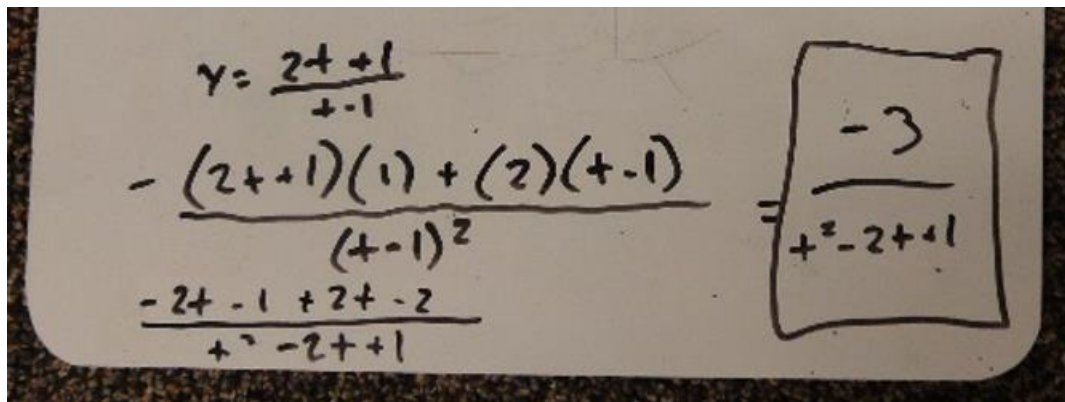 y = (2t + 1)/(t - 1)
(-(2t + 1)(1) + (2)(t - 1))/(t - 1)²
(-2t - 1 + 2t - 2)/(t² - 2t + 1)
= -3/(t² - 2t + 1)